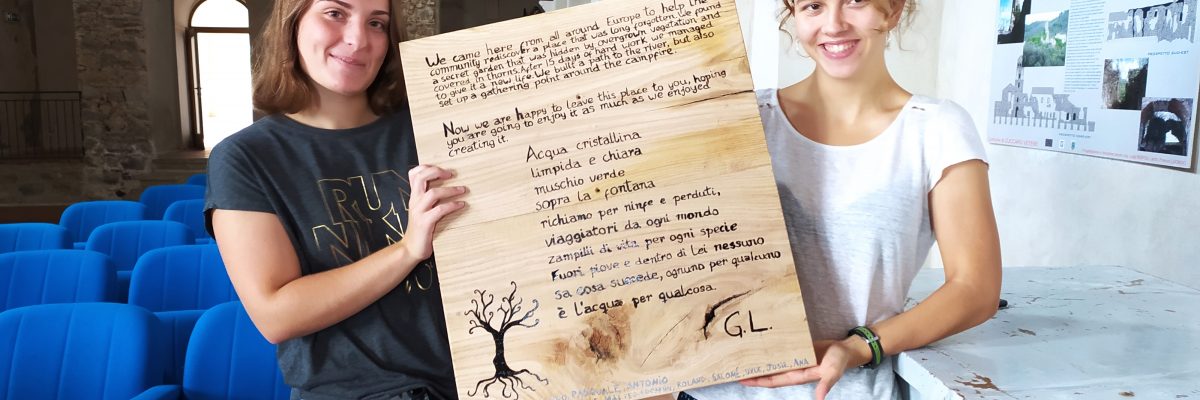 We came here from all around Europe to help the
community rediscover a place that was long forgotten. We found
a secret garden that was hidden by overgrown vegetation and
covered in thorns. After 15 days of hard work we managed
to give it a new life. We built a path to the river, but also
set up a gathering point around the campfire.
Now we are happy to leave this place to you, hoping
you are going to enjoy it as much as we enjoyed
creating it.
Acqua cristallina
limpida e chiara
muschio verde
sopra la fontana
richiamo per ninfe e perduti,
viaggiatori da ogni mondo
zampilli di vita per ogni specie
Fuori piove e dentro di lei nessuno
sa cosa succede, ognuno per qualcuno
è l'acqua per qualcosa.
G.L.
PASQUALE, ANTONIO
ROLAND, SALOMÉ, JOSIE, ANA
RUN